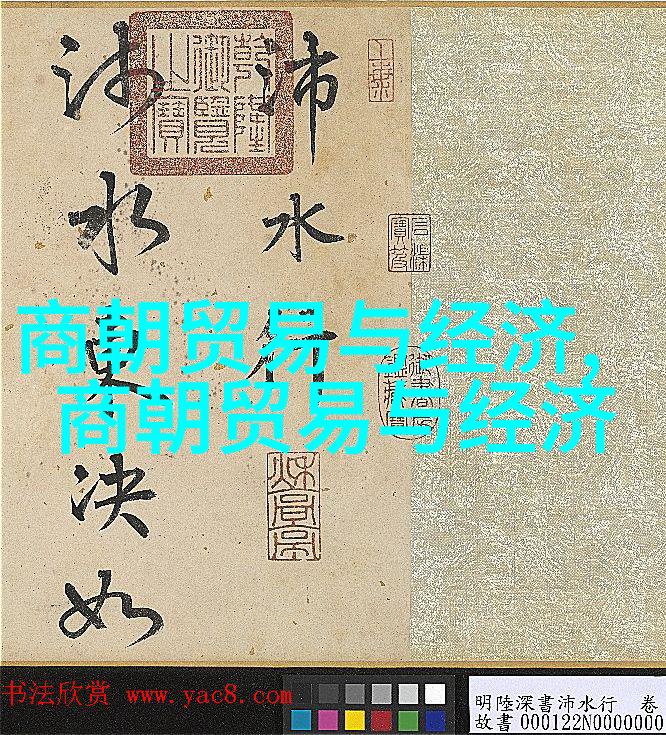 沛水行
沛水東決如
乾隆
御覽
之寶
石渠
寶笈
商朝贸易与经济,
商朝贸易与经济
书法欣赏 www.yac8.com
明陸深書沛水行 卷
故書 000122N0000000